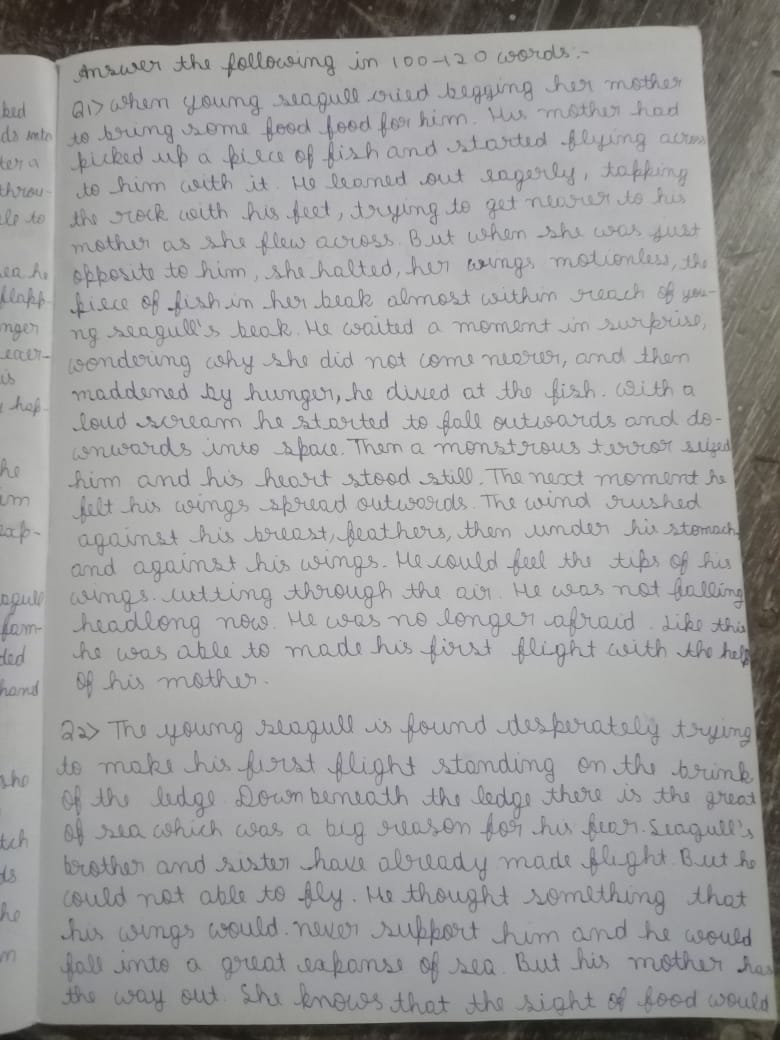 Answer the following in 100-120 words:-
Q1> When young seagull cried begging her mother
to bring some food food for him. His mother had
picked up a piece of fish and started flying across
to him with it. He leaned out eagerly, tapping
the rock with his feet, trying to get nearer to his
mother as she flew across. But when she was just
opposite to him, she halted, her wings motionless, the
piece of fish in her beak almost within reach of you-
ng seagull's beak. He waited a moment in surprise,
wondering why she did not come nearer, and then
maddened by hunger, he dived at the fish. With a
loud scream he started to fall outwards and do-
wnwards into space. Then a monstrous terror seized
him and his heart stood still. The next moment he
felt his wings spread outwards. The wind rushed
against his breast, feathers, then under his stomach
and against his wings. He could feel the tips of his
wings. cutting through the air. He was not falling
headlong now. He was no longer afraid. Like this
he was able to made his first flight with the help
of his mother.
Q2> The young seagull is found desperately trying
to make his first flight standing on the brink
of the ledge. Down beneath the ledge there is the great
of sea which was a big reason for his fear. Seagull's
brother and sister have already made flight. But he
could not able to fly. He thought something that
his wings would. never support him and he would
fall into a great expanse of sea. But his mother has
the way out. She knows that the sight of food would
ked
ds into
ter a
throu-
le to
ea he
flapp-
nger
is
hop-
he
im
exp-
agull
fam-
ded
hand
she
tch
ds
he
m